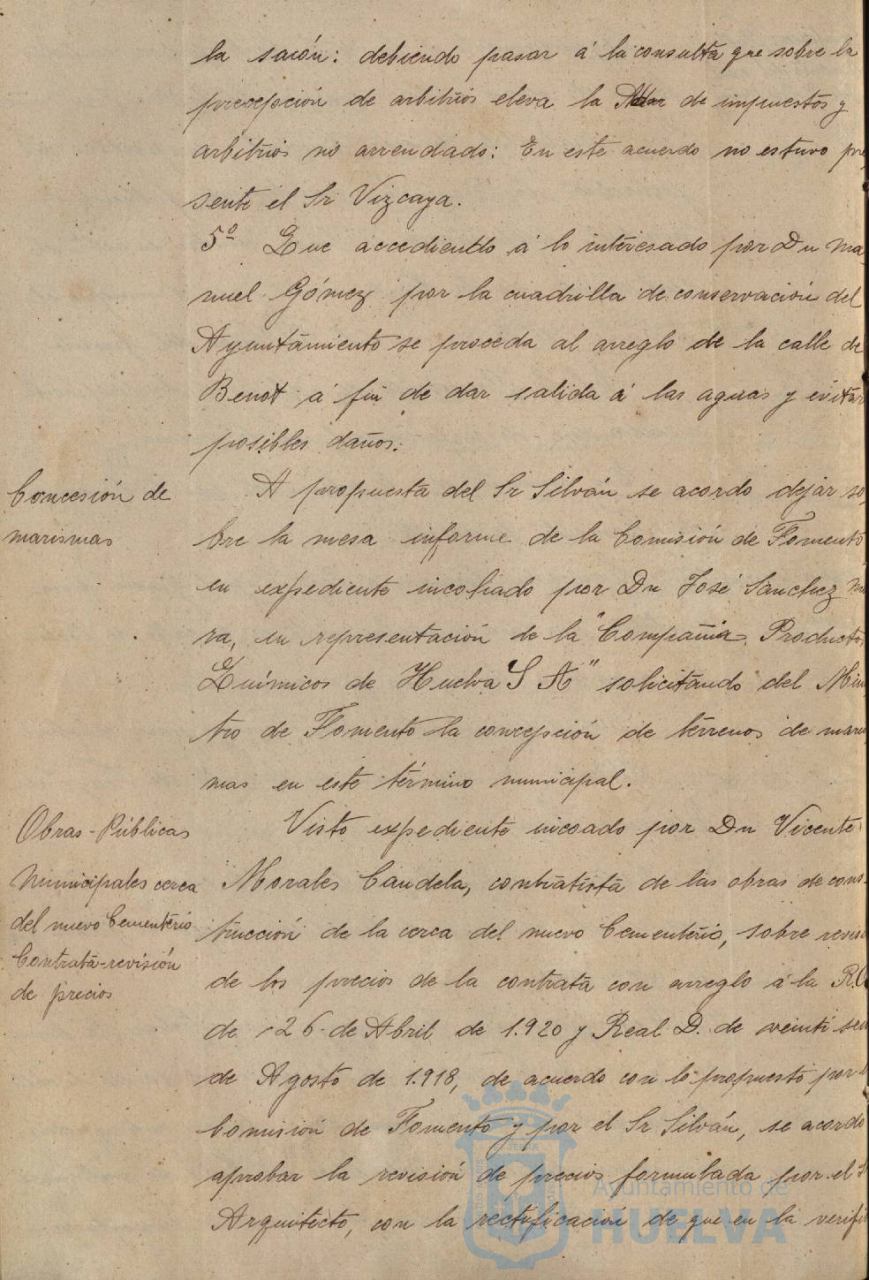 la sación: debiendo pasar á la consulta que sobre la
precepción de arbitrios eleva la de impuestos y
arbitrios no arrendado: En este acuerdo no estuvo pre
sente el Sr Vizcaya.
5º Que accediendo á lo interesado por Dn Ma-
nuel Gómez por la cuadrilla de conservación del
Ayuntamiento se proceda al arreglo de la calle de
Benot á fin de dar salida á las aguas y evitar
posibles daños.
Concesión de
marismas
A propuesta del Sr Silván se acordo dejar so-
bre la mesa informe de la Comisión de Fomento
en expediente incohado por Dn José Sanchez M
ra, en representación de la "Compañia Productos
Químicos de Huelva S A" solicitando del Minis
tro de Fomento la concepción de terrenos de maris
mas en este término municipal.
Obras-Públicas
Municipales cerca
del nuevo Cementerio
Contrata-revisión
de precios
Visto expediente incoado por Dn Vicente
Morales Candela, contratista de las obras de cons-
trucción de la cerca del nuevo Cementerio, sobre revisi
de los precios de la contrata con arreglo á la R.O
de 26 de Abril de 1.920 y Real D. de veinti seis
de Agosto de 1.918, de acuerdo con lo propuesto por l
Comisión de Fomento y por el Sr Silván, se acordo
aprobar la revisión de precios formulada por el S
Arquitecto, con la rectificacion de que en la verifi
Ayuntamiento de
HUELVA